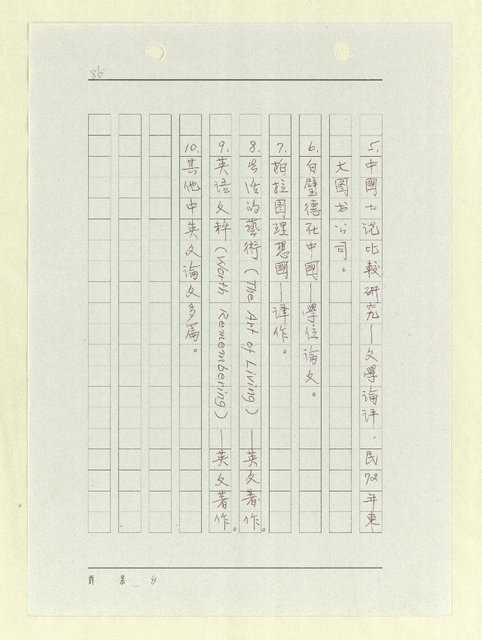 86
5. 中國小説比較研究—文學論評，民72年東
大图书公司。
6. 白璧德在中國—學位論文。
7. 柏拉图理想國—译作。
8. 生活的藝術 (The Art of Living) —英文著作。
9. 英语文粹 (Worth Remembering) —英文著作。
10. 其他中英文論文多篇。